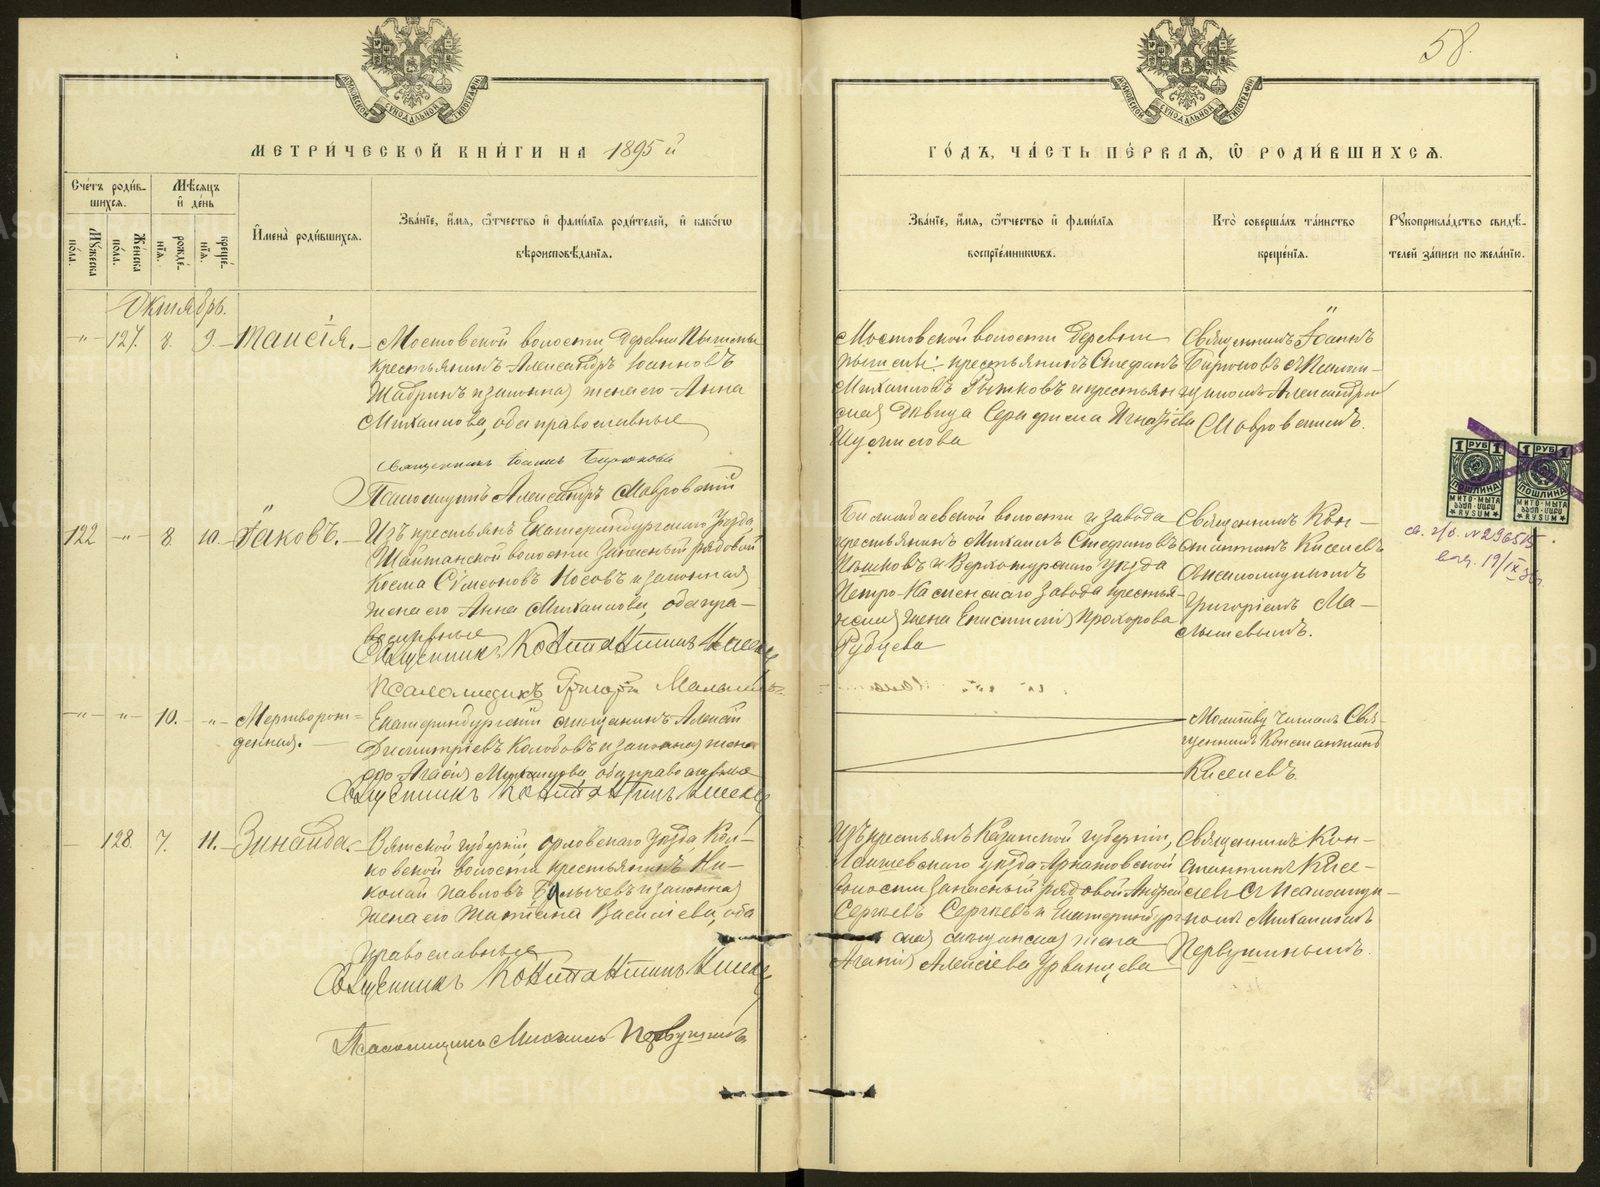 58.
МЕТРИ́ЧЕСКОЙ КНИ́ГИ НА 1895 й
ГО́ДЪ, ЧА́СТЬ ПЕ́РВАЯ, Ѡ РОДИ́ВШИХСЯ.
Сче́тъ роди́в-
шихся.
Мꙋ́жеска по́ла.
Же́нска по́ла.
Мѣ́сяцъ и де́нь
рожде́нїя.
креще́нїя.
И҆мена̀ роди́вшихся.
Зва́нїе, и҆́мя, ѻ҆́тчество и҆ фами́лїя роди́телей, и҆ како́гѡ
вѣроисповѣ́данїя.
Зва́нїе, и҆́мя, ѻ҆́тчество и҆ фами́лїя
воспрїе́мникѡвъ.
Кто̀ соверша́лъ та́инство
креще́нїя.
Рꙋкоприкла́дство свидѣ́-
телей за́писи по жела́нїю.
Октябрь.
-"- 127. 8. 9. Таисія.
Мостовской волости деревни Пышмы
крестьянинъ Александръ Іоанновъ
Шабринъ и законная жена его Анна
Михаилова, оба православные
Священникъ Іоаннъ Бирюковъ
Псаломщикъ Александръ Мавровскій
Мостовской волости деревни
Пышмы крестьянинъ Стефанъ
Михаиловъ Рычковъ и крестьян
ская дѣвица Серафима Игнатіева
Священникъ Іоаннъ
Бирюковъ съ Псалом-
щикомъ Александромъ
Мавровскимъ.
122 -"- 8 10. Іаковъ.
Изъ крестьянъ Екатеринбургскаго уѣзда,
Шайтанской волости запасный рядовой
Косма Симеоновъ Носовъ и законная
жена его Анна Михаилова, оба пра-
вославные
Священникъ Константинъ Киселевъ
Псаломщикъ Григорій Малышевъ
Билимбаевской волости и завода
крестьянинъ Михаилъ Стефановъ
и Верхотурскаго уѣзда
Петро-Каменскаго завода крестья-
нская жена Епистимія Прохорова
Рубцева
Священникъ Кон-
стантинъ Киселевъ
съ псаломщикомъ
Григоріемъ Ма-
лышевымъ.
1 РУБ 1
ПОШЛИНА
МИТО-МЫТА
RYSUM
1 РУБ 1
ПОШЛИНА
МИТО-МЫТА
RYSUM
св. г/о. №296515
выд. 19/IX 36г.
-"- -"- 10. -"- Мертворож-
денная.
Екатеринбургскій мѣщанинъ Алексій
Димитріевъ Колобовъ и законная жена
его Агаѳія Михаилова, оба православные
Священникъ Константинъ Киселевъ
Молитву читалъ Свя-
щенникъ Константинъ
Киселевъ.
128. 7. 11. Зинаида.
Вятской губерніи, Орловскаго уѣзда Кол-
ковской волости крестьянинъ Ни-
колай Павловъ Балычевъ и законная
жена его Татіана Василіева, оба
православные
Священникъ Константинъ Киселевъ
Псаломщикъ Михаилъ Первушинъ
Изъ крестьянъ Казанской губерніи,
Лаишевскаго уѣзда Арнашовской
волости запасный рядовой Андрей
Сергѣевъ Сергѣевъ и Екатеринбург
ская мѣщанская жена
Агапія Алексіева Урванцева
Священникъ Кон-
стантинъ Кисе-
левъ съ Псаломщи-
комъ Михаиломъ
Первушинымъ.